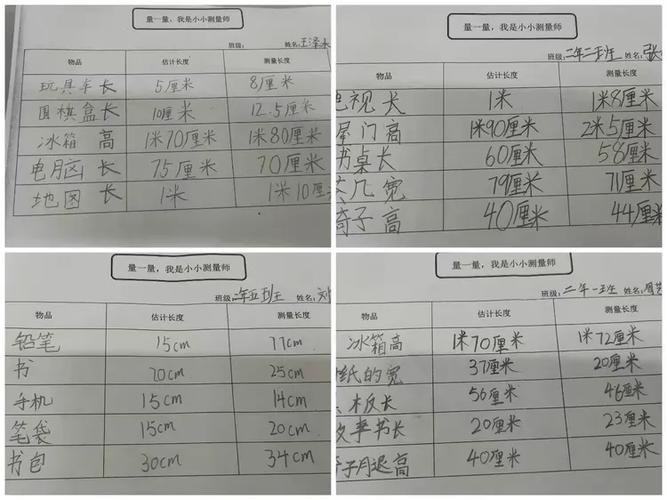 量一量，我是小小测量师
班级： 姓名：王泽
物品 估计长度 测量长度
玩具车长 5厘米 8厘米
围棋盒长 10厘米 12.5厘米
冰箱高 1米70厘米 1米80厘米
电脑长 75厘米 70厘米
地图长 1米 1米10厘
量一量，我是小小测量师
班级：二年二班 姓名：张
物品 估计长度 测量长度
电视长 1米 1米8厘米
门高 1米90厘米 2米5厘米
书桌长 60厘米 58厘米
茶几宽 79厘米 71厘米
椅子高 40厘米 44厘米
量一量，我是小小测量师
班级：二年五班 姓名：刘
物品 估计长度 测量长度
铅笔 15cm 17cm
书 20cm 25cm
手机 15cm 14cm
笔袋 15cm 20cm
书包 30cm 34cm
量一量，我是小小测量师
班级：二年一班 姓名：周
物品 估计长度 测量长度
冰箱高 1米70厘米 1米72厘米
纸的宽 37厘米 20厘米
板长 56厘米 46厘米
故事书长 20厘米 23厘米
子月退高 40厘米 40厘米